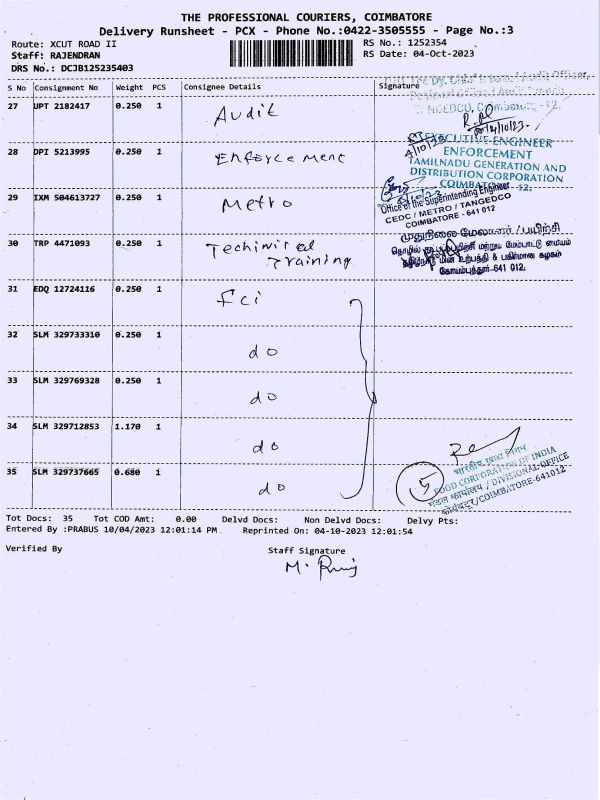 THE PROFESSIONAL COURIERS, COIMBATORE
Delivery Runsheet - PCX - Phone No.:0422-3505555 - Page No.:3
Route: XCUT ROAD II RS No.: 1252354
Staff: RAJENDRAN RS Date: 04-Oct-2023
DRS No.: DCJB125235403
S No Consignment No Weight PCS Consignee Details Signature
27 UPT 2182417 0.250 1 Audit
Coimbatore -12.
28 DPI 5213995 0.250 1 Enforcement
4/10/23
EXECUTIVE ENGINEER
ENFORCEMENT
TAMILNADU GENERATION AND
DISTRIBUTION CORPORATION
COIMBATORE - 12.
29 IXM 504613727 0.250 1 Metro
Office of the Superintending Engineer
CEDC / METRO / TANGEDCO
COIMBATORE - 641 012
30 TRP 4471093 0.250 1 Techinical Training
முதுநிலை மேலாளர் / பயிற்சி
கோயம்புத்தூர்-641 012.
31 EDQ 12724116 0.250 1 fci
32 SLM 329733310 0.250 1 do
33 SLM 329769328 0.250 1 do
34 SLM 329712853 1.170 1 do
35 SLM 329737665 0.680 1 do
5
भारतीय खाद्य निगम
FOOD CORPORATION OF INDIA
मंडल कार्यालय / DIVISIONAL OFFICE
कोयंबटूर/COIMBATORE-641012
Tot Docs: 35 Tot COD Amt: 0.00 Delvd Docs: Non Delvd Docs: Delvy Pts:
Entered By :PRABUS 10/04/2023 12:01:14 PM Reprinted On: 04-10-2023 12:01:54
Verified By Staff Signature